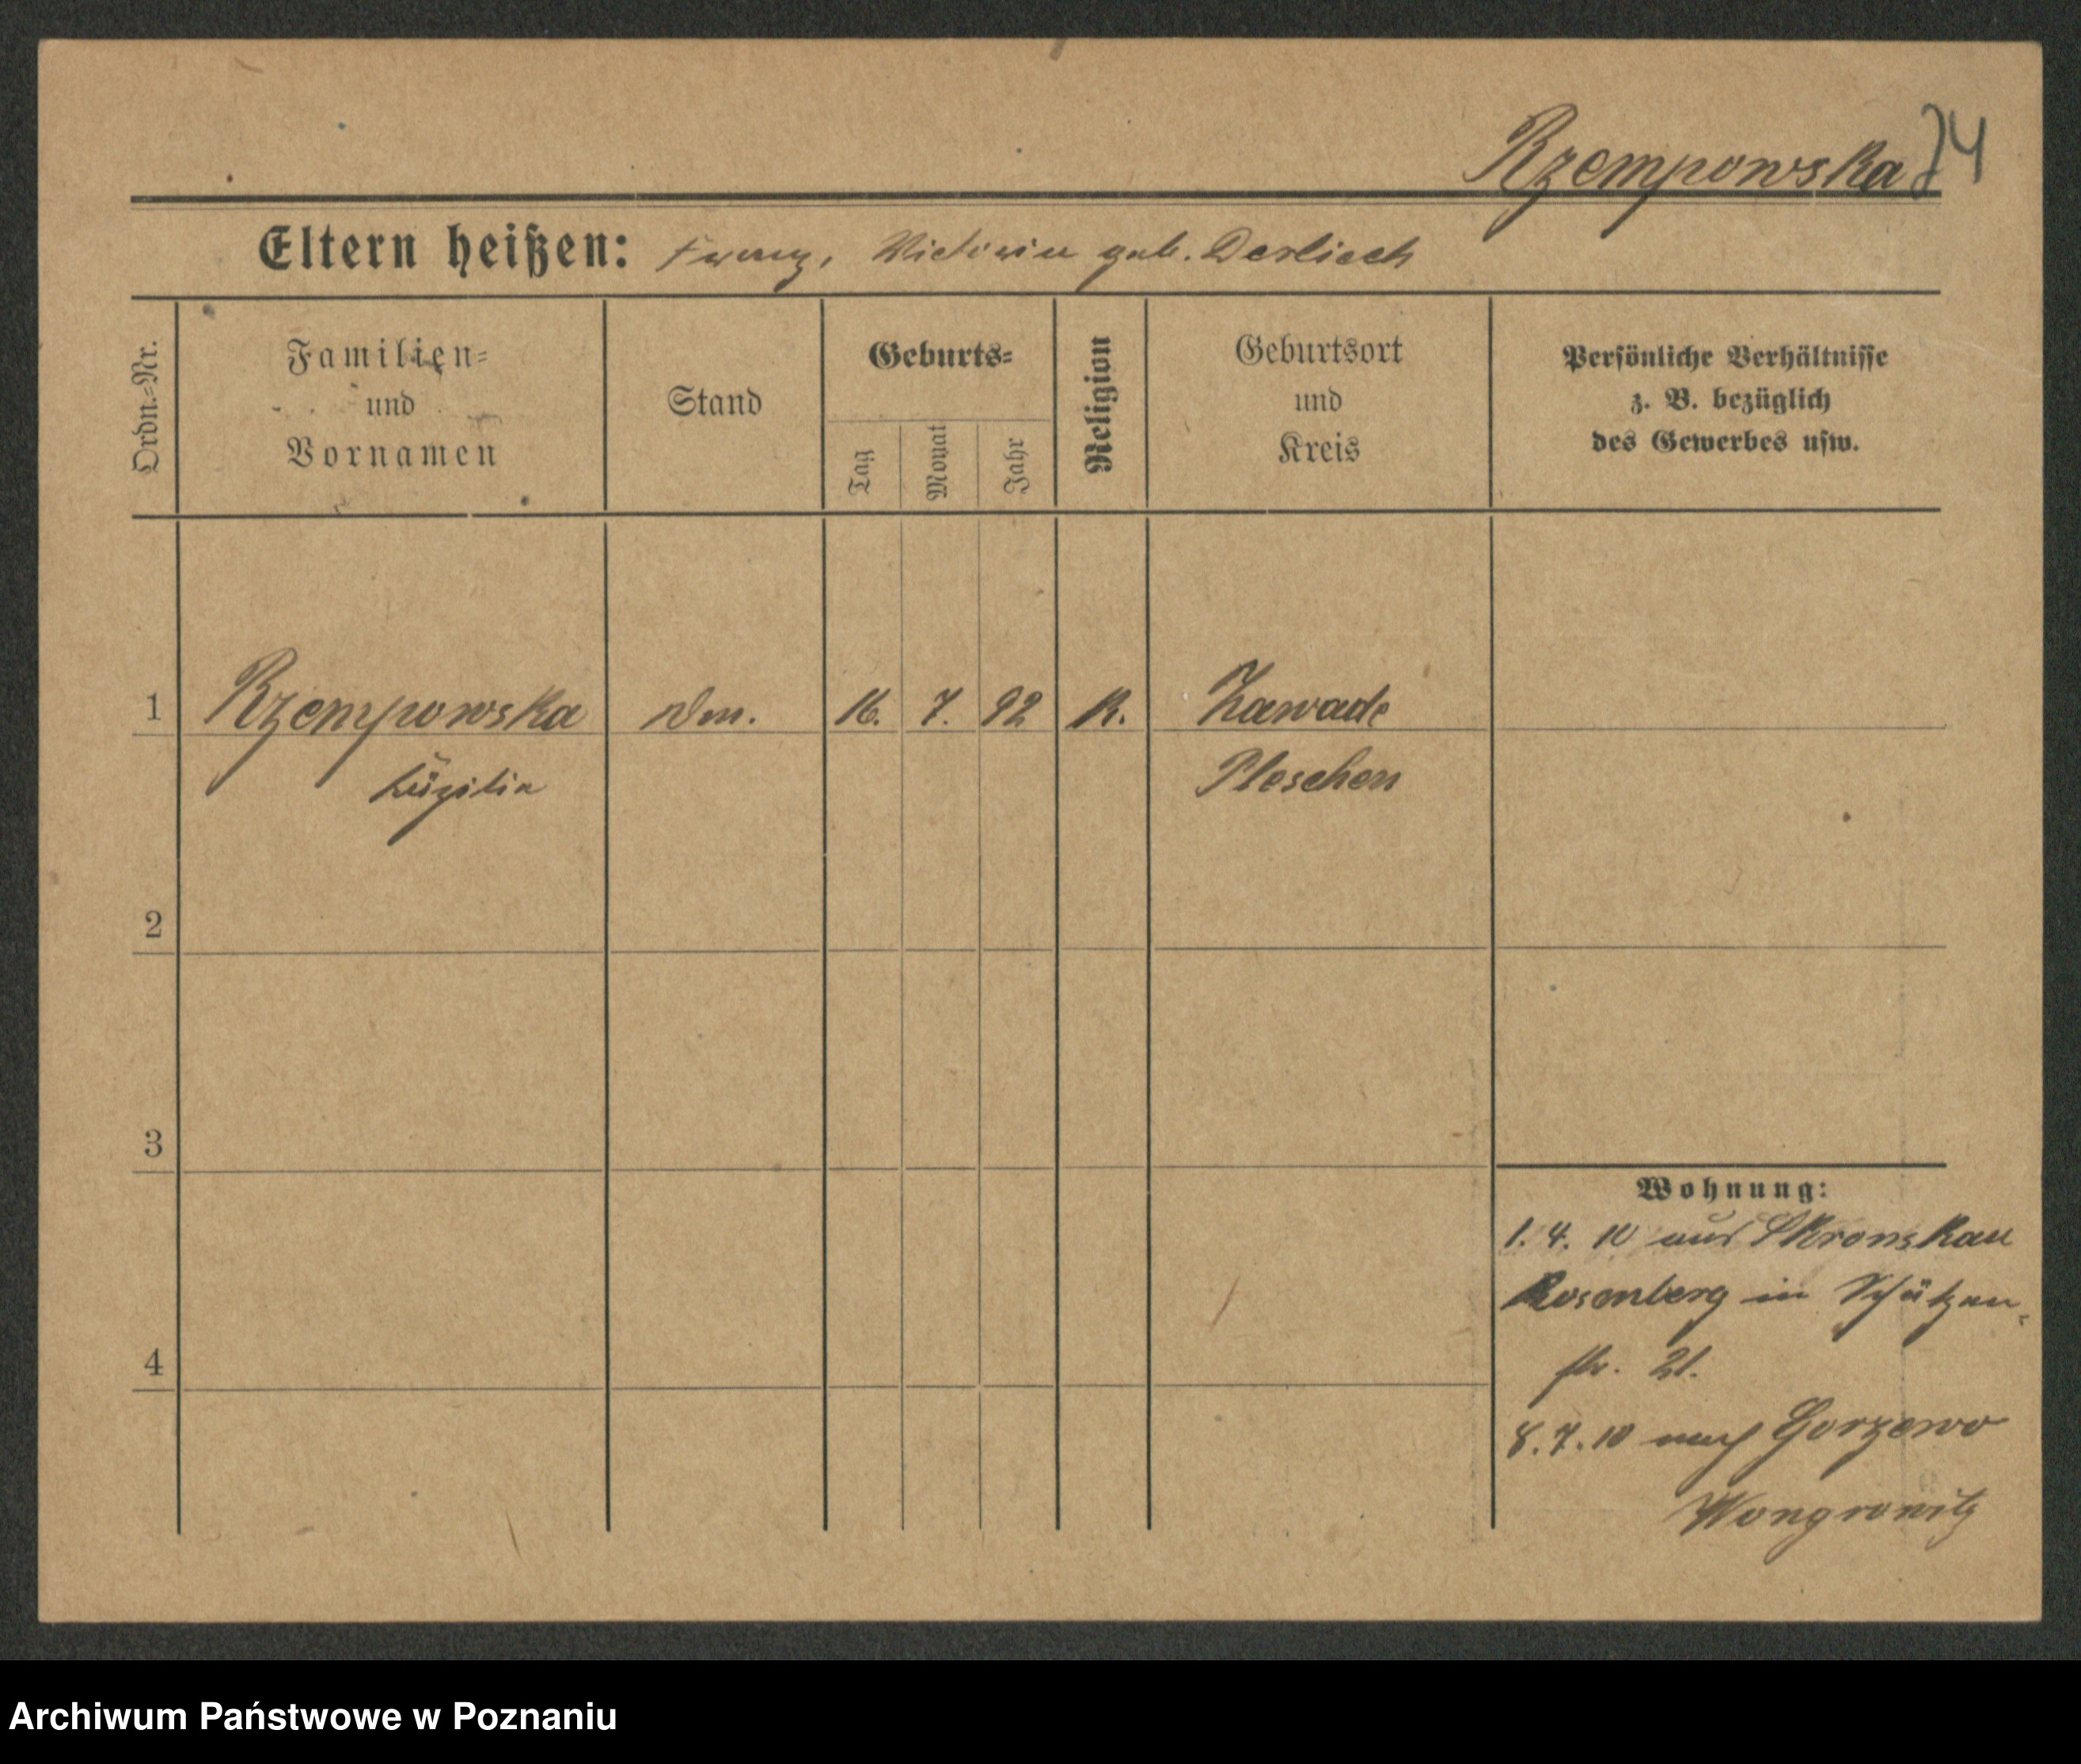 Rzempowska 74
Eltern heißen: Franz, Victoria geb. Derliech
Ordn.=Nr.
Familien=
und
Vornamen
Stand
Geburts=
Tag
Monat
Jahr
Religion
Geburtsort
und
Kreis
Persönliche Verhältnisse
z. B. bezüglich
des Gewerbes usw.
1 Rzempowska 16. 7. 92 K. Zawade
Pleschen
2
3
4
Wohnung:
1. 4. 10 aus Skronskau
Rosenberg in Schützen-
str. 21.
8. 7. 10 nach Gorzewo
Wongrowitz
Archiwum Państwowe w Poznaniu